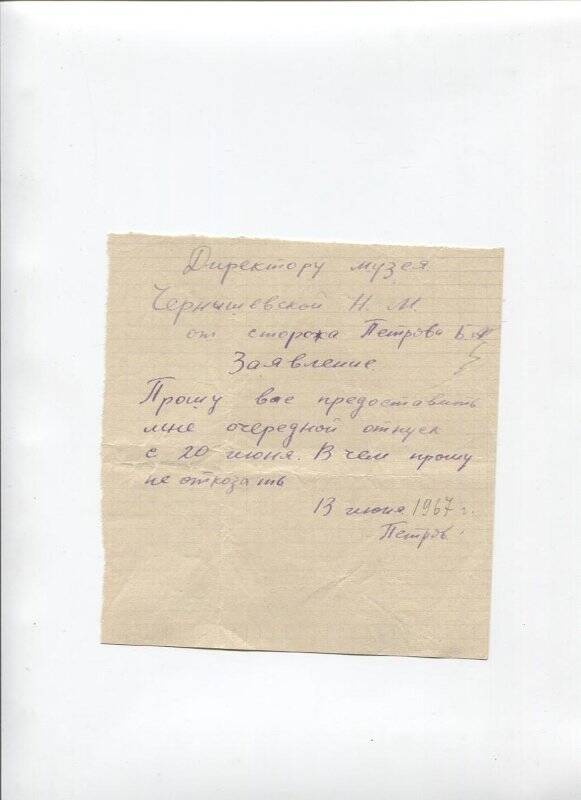 Директору музея
Чернышевской Н. М.
от сторожа Петрова Б.
Заявление.
Прошу вас предоставить
мне очередной отпуск
с 20 июня. В чем прошу
не отказать
13 июня 1967 г.
Петров.